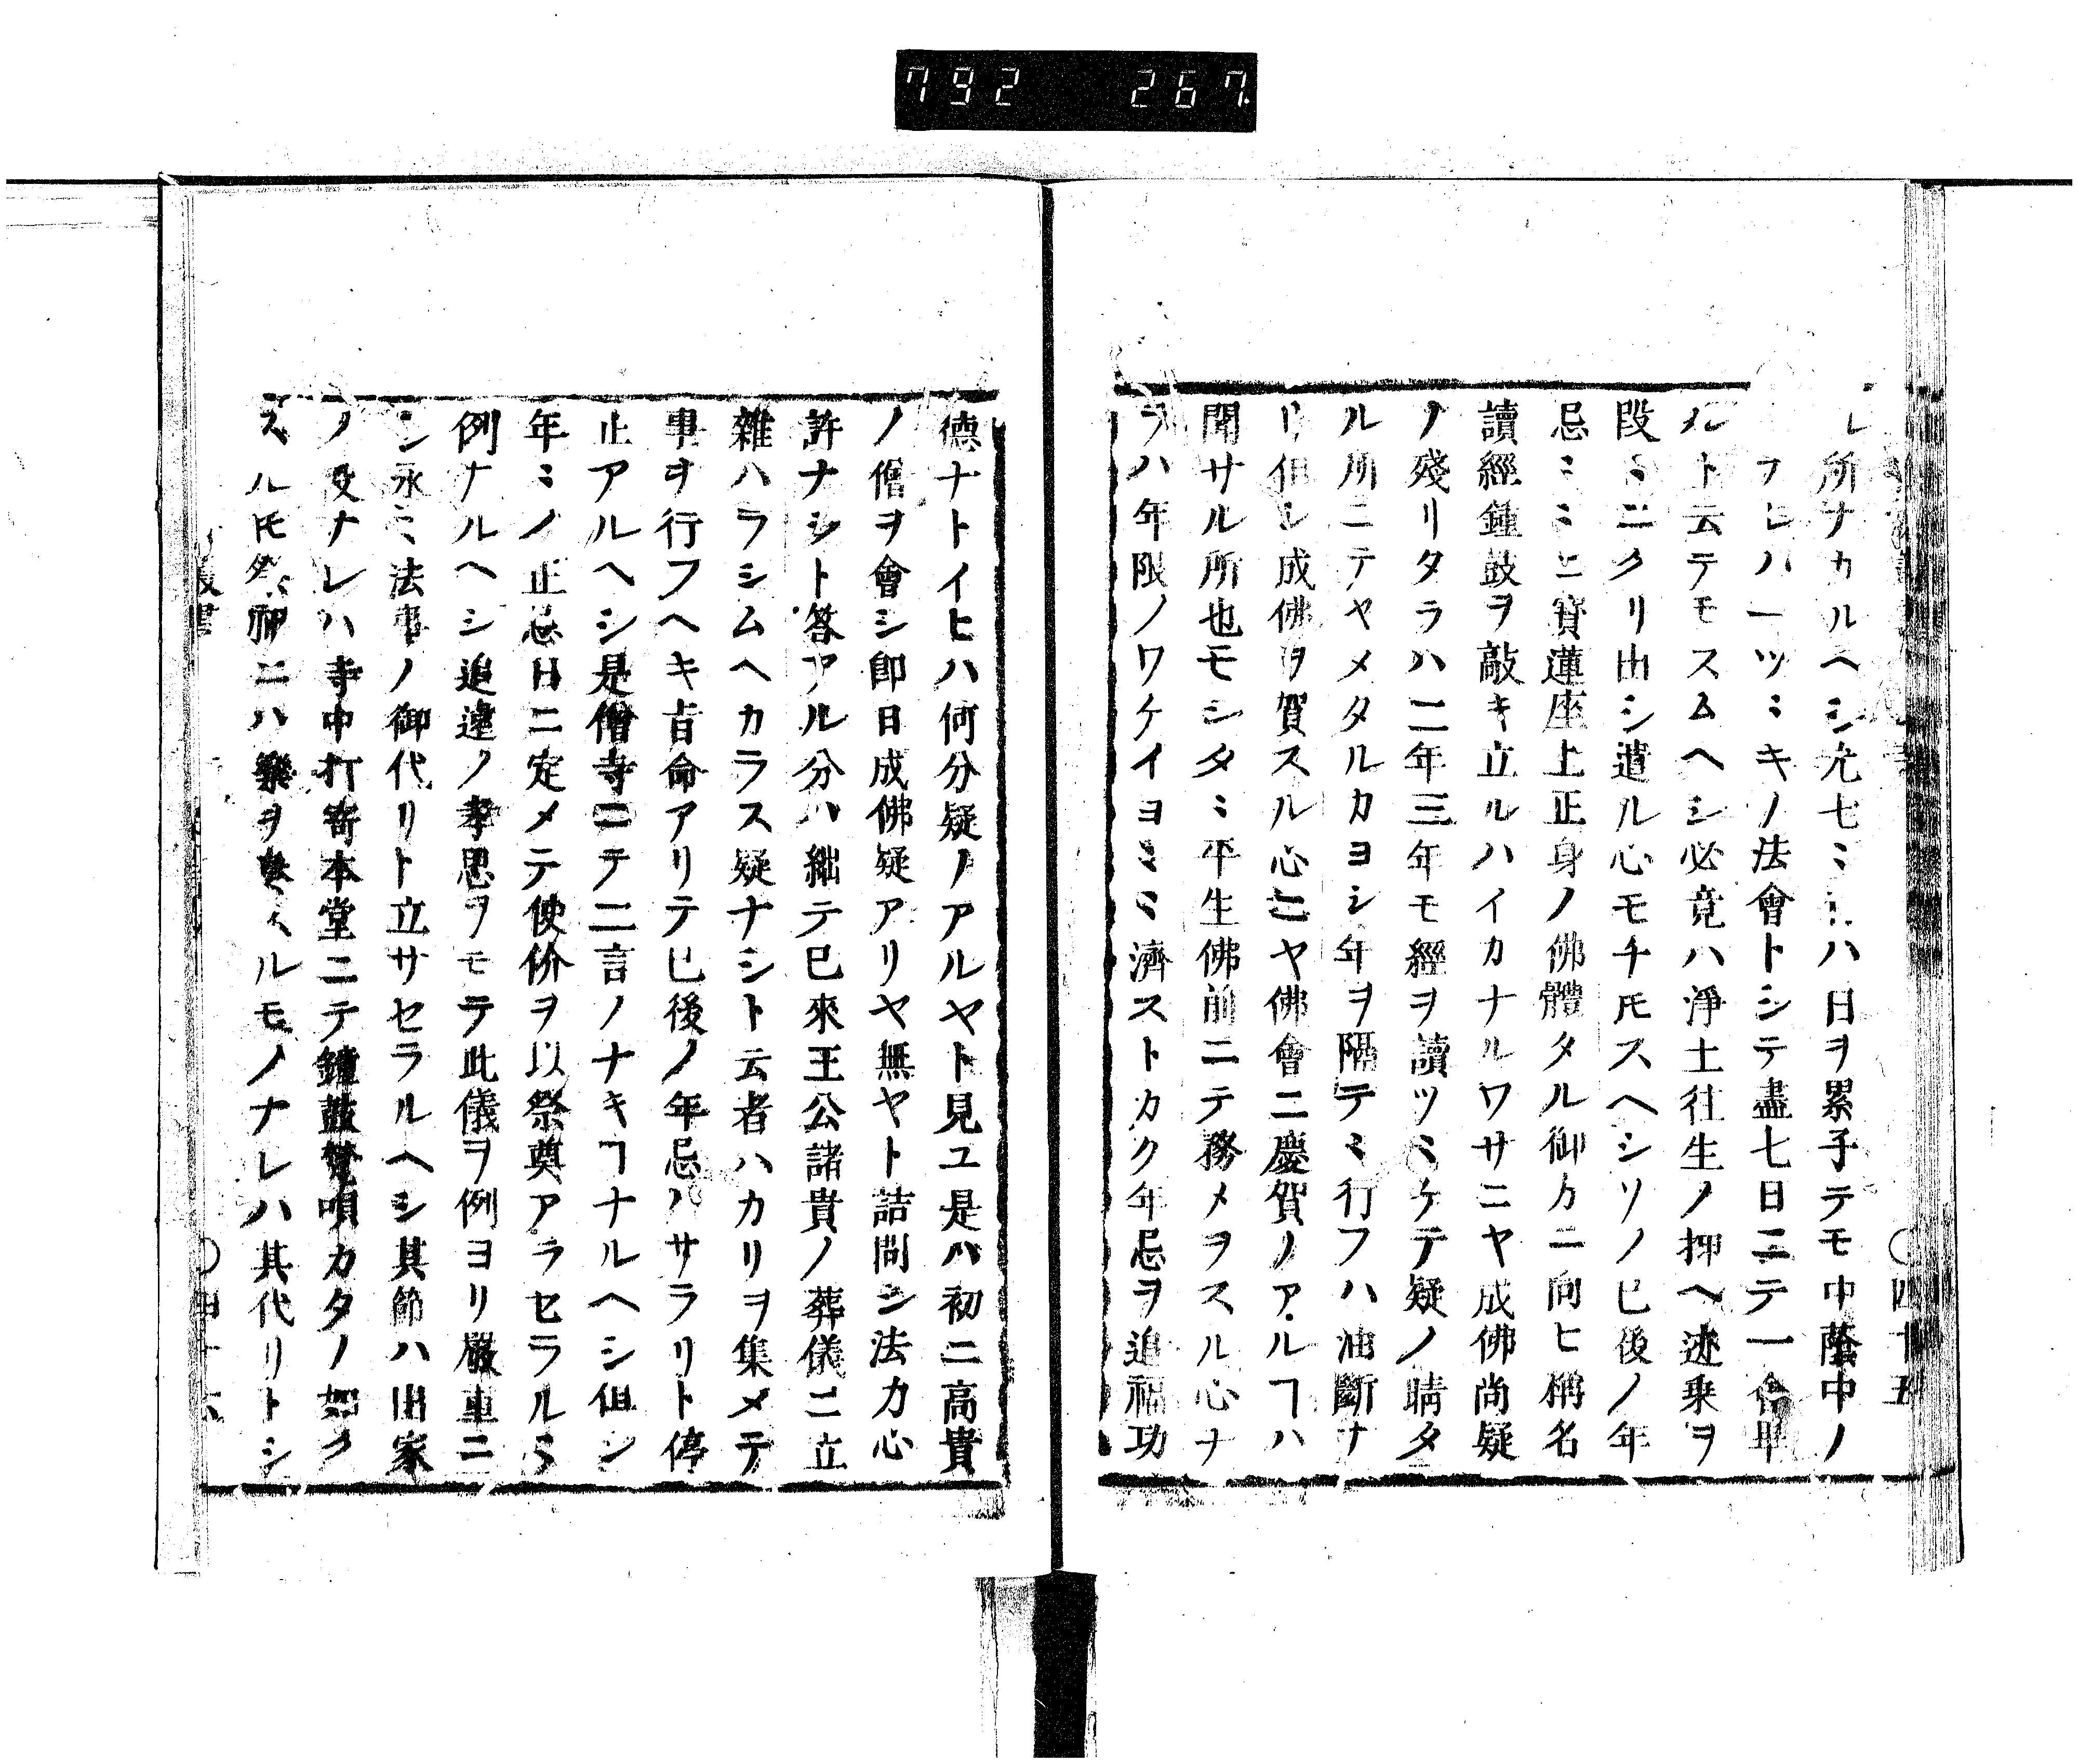 792 267
レ所ナカルヘシ尤七ミ ハ日ヲ累子テモ中蔭中ノ
ヲレハ一ツミキノ法會トシテ盡七日ニテ一倍
ルト云テモスムヘシ必竟ハ淨土往生ノ押ヘ迹乗ヲ
段ミニクリ出シ遣ル心モチ𪜈スヘシソノ已後ノ年
忌ミミヒ寳蓮座上正身ノ佛體タル御方ニ向ヒ稱名
讀經鍾鼓ヲ敲キ立ルハイカナルワサニヤ成佛尚疑
ノ殘リタラハ二年三年モ經ヲ讀ツミケテ疑ノ晴タ
ル所ニテヤメタルカヨシ年ヲ隔テミ行フハ油斷ナ
リ但シ成佛ヲ賀スル心ニヤ佛會ニ慶賀ノアルヿハ
聞サル所也モシタミ平生佛前ニテ務メヲスル心ナ
ラハ年限ノワケイヨミミ濟ストカク年忌ヲ追福功
〇四十五
德ナトイヒハ何分疑ノアルヤト見ユ是ハ初ニ高貴
ノ僧ヲ會シ即日成佛疑アリヤ無ヤト詰問シ法力心
許ナシト答アル分ハ絀テ已來王公諸貴ノ葬儀ニ立
雜ハラシムヘカラス疑ナシト云者ハカリヲ集メテ
事ヲ行フヘキ旨命アリテ已後ノ年忌ハサラリト停
止アルヘシ是僧寺ニテ二言ノナキヿナルヘシ但シ
年ミノ正忌日ニ定メテ使价ヲ以祭奠アラセラルミ
例ナルヘシ追遠ノ孝思ヲモテ此儀ヲ例ヨリ嚴重ニ
シ永ミ法事ノ御代リト立サセラルヘシ其節ハ出家
ノ役ナレハ寺中打寄本堂ニテ鐘鼓梵唄カタノ如ク
スル𪜈祭神ニハ樂ヲ奏スルモノナレハ其代リトシ
〇四十六